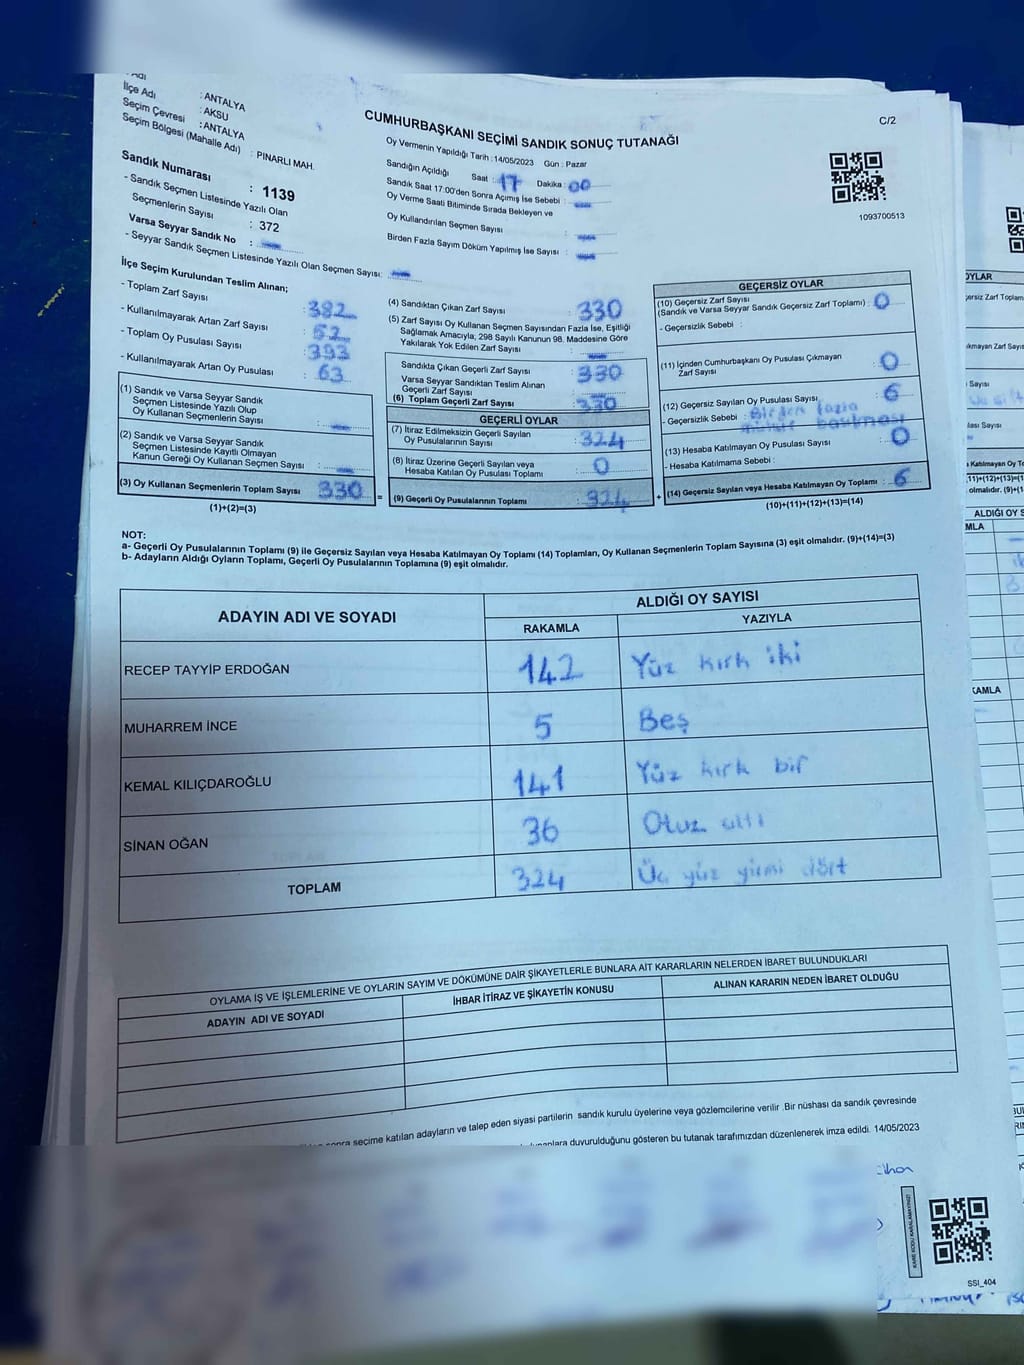 Adı
İlçe Adı : ANTALYA
Seçim Çevresi : AKSU
Seçim Bölgesi (Mahalle Adı) : ANTALYA
: PINARLI MAH.
C/2
CUMHURBAŞKANI SEÇİMİ SANDIK SONUÇ TUTANAĞI
Oy Vermenin Yapıldığı Tarih :14/05/2023 Gün : Pazar
Sandığın Açıldığı Saat : 17 Dakika : 00
Sandık Saat 17:00'den Sonra Açımış İse Sebebi :
Oy Verme Saati Bitiminde Sırada Bekleyen ve
Oy Kullandırılan Seçmen Sayısı :
Birden Fazla Sayım Döküm Yapılmış İse Sayısı :
1093700513
Sandık Numarası : 1139
- Sandık Seçmen Listesinde Yazılı Olan
Seçmenlerin Sayısı : 372
Varsa Seyyar Sandık No :
- Seyyar Sandık Seçmen Listesinde Yazılı Olan Seçmen Sayısı:
İlçe Seçim Kurulundan Teslim Alınan;
- Toplam Zarf Sayısı : 382
- Kullanılmayarak Artan Zarf Sayısı : 52
- Toplam Oy Pusulası Sayısı : 393
- Kullanılmayarak Artan Oy Pusulası : 63
(1) Sandık ve Varsa Seyyar Sandık
Seçmen Listesinde Yazılı Olup
Oy Kullanan Seçmenlerin Sayısı :
(2) Sandık ve Varsa Seyyar Sandık
Seçmen Listesinde Kayıtlı Olmayan
Kanun Gereği Oy Kullanan Seçmen Sayısı :
(3) Oy Kullanan Seçmenlerin Toplam Sayısı 330 =
(1)+(2)=(3)
(4) Sandıktan Çıkan Zarf Sayısı : 330
(5) Zarf Sayısı Oy Kullanan Seçmen Sayısından Fazla İse, Eşitliği
Sağlamak Amacıyla, 298 Sayılı Kanunun 98. Maddesine Göre
Yakılarak Yok Edilen Zarf Sayısı :
Sandıkta Çıkan Geçerli Zarf Sayısı : 330
Varsa Seyyar Sandıktan Teslim Alınan
Geçerli Zarf Sayısı :
(6) Toplam Geçerli Zarf Sayısı : 330
GEÇERLİ OYLAR
(7) İtiraz Edilmeksizin Geçerli Sayılan
Oy Pusulalarının Sayısı : 324
(8) İtiraz Üzerine Geçerli Sayılan veya
Hesaba Katılan Oy Pusulası Toplamı : 0
(9) Geçerli Oy Pusulalarının Toplamı : 324 +
GEÇERSİZ OYLAR
(10) Geçersiz Zarf Sayısı
(Sandık ve Varsa Seyyar Sandık Geçersiz Zarf Toplamı) : 0
- Geçersizlik Sebebi :
(11) İçinden Cumhurbaşkanı Oy Pusulası Çıkmayan
Zarf Sayısı : 0
(12) Geçersiz Sayılan Oy Pusulası Sayısı : 6
- Geçersizlik Sebebi : Birden fazla
mühür basılması
(13) Hesaba Katılmayan Oy Pusulası Sayısı : 0
- Hesaba Katılmama Sebebi :
(14) Geçersiz Sayılan veya Hesaba Katılmayan Oy Toplamı : 6
(10)+(11)+(12)+(13)=(14)
NOT:
a- Geçerli Oy Pusulalarının Toplamı (9) ile Geçersiz Sayılan veya Hesaba Katılmayan Oy Toplamı (14) Toplamları, Oy Kullanan Seçmenlerin Toplam Sayısına (3) eşit olmalıdır. (9)+(14)=(3)
b- Adayların Aldığı Oyların Toplamı, Geçerli Oy Pusulalarının Toplamına (9) eşit olmalıdır.
ADAYIN ADI VE SOYADI ALDIĞI OY SAYISI
RAKAMLA YAZIYLA
RECEP TAYYİP ERDOĞAN 142 Yüz kırk iki
MUHARREM İNCE 5 Beş
KEMAL KILIÇDAROĞLU 141 Yüz kırk bir
SİNAN OĞAN 36 Otuz altı
TOPLAM 324 Üç yüz yirmi dört
OYLAMA İŞ VE İŞLEMLERİNE VE OYLARIN SAYIM VE DÖKÜMÜNE DAİR ŞİKAYETLERLE BUNLARA AİT KARARLARIN NELERDEN İBARET BULUNDUKLARI
ADAYIN ADI VE SOYADI İHBAR İTİRAZ VE ŞİKAYETİN KONUSU ALINAN KARARIN NEDEN İBARET OLDUĞU
sonra seçime katılan adayların ve talep eden siyasi partilerin sandık kurulu üyelerine veya gözlemcilerine verilir .Bir nüshası da sandık çevresinde
duyurulduğunu gösteren bu tutanak tarafımızdan düzenlenerek imza edildi. 14/05/2023
SSI_404